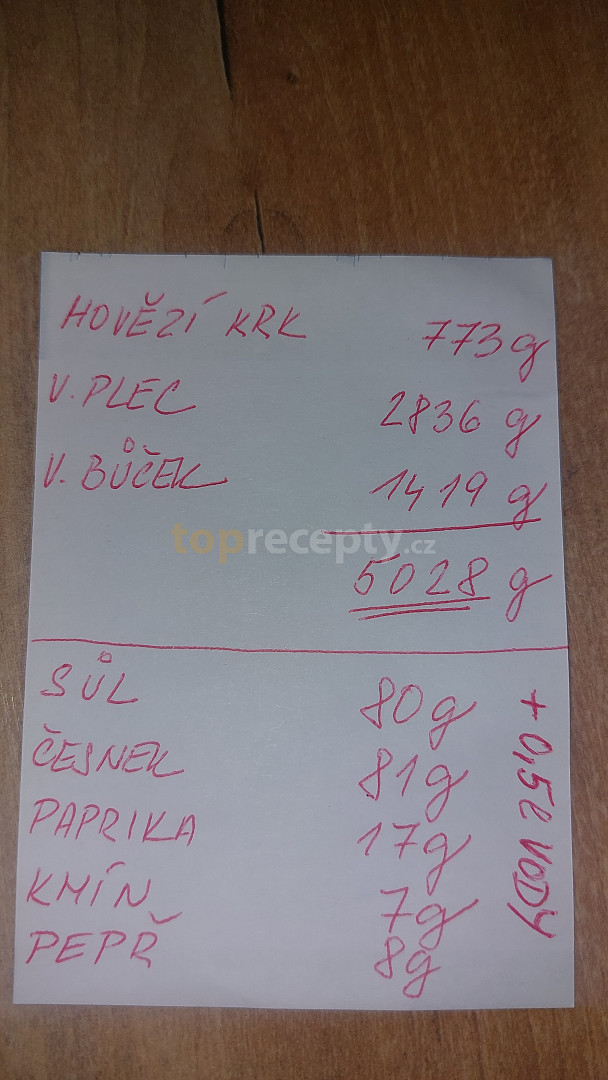 HOVĚZÍ KRK 773 g
V. PLEC 2836 g
V. BŮČEK 1419 g
toprecepty.cz
5028 g
SŮL 80 g
ČESNEK 81 g
PAPRIKA 17 g
KMÍN 7 g
PEPŘ 8 g
+ 0,5l VODY